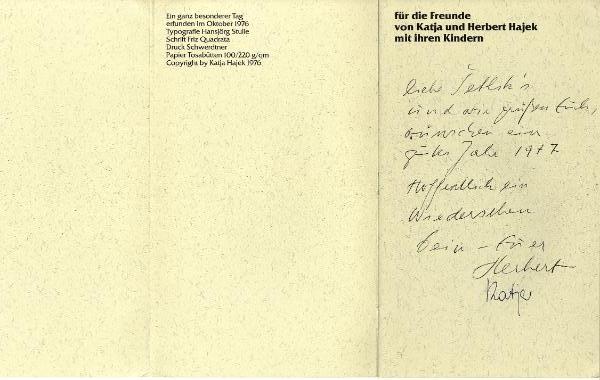 Ein ganz besonderer Tag
erfunden im Oktober 1976
Typografie Hansjörg Stulle
Schrift Friz Quadrata
Druck Schwerdtner
Papier Tosabütten 100/220 g/qm
Copyright by Katja Hajek 1976
für die Freunde
von Katja und Herbert Hajek
mit ihren Kindern
liebe
und wir grüßen Euch,
wünschen ein
gutes Jahr 1977
Hoffentlich ein
Wiedersehen
Herbert
Katja